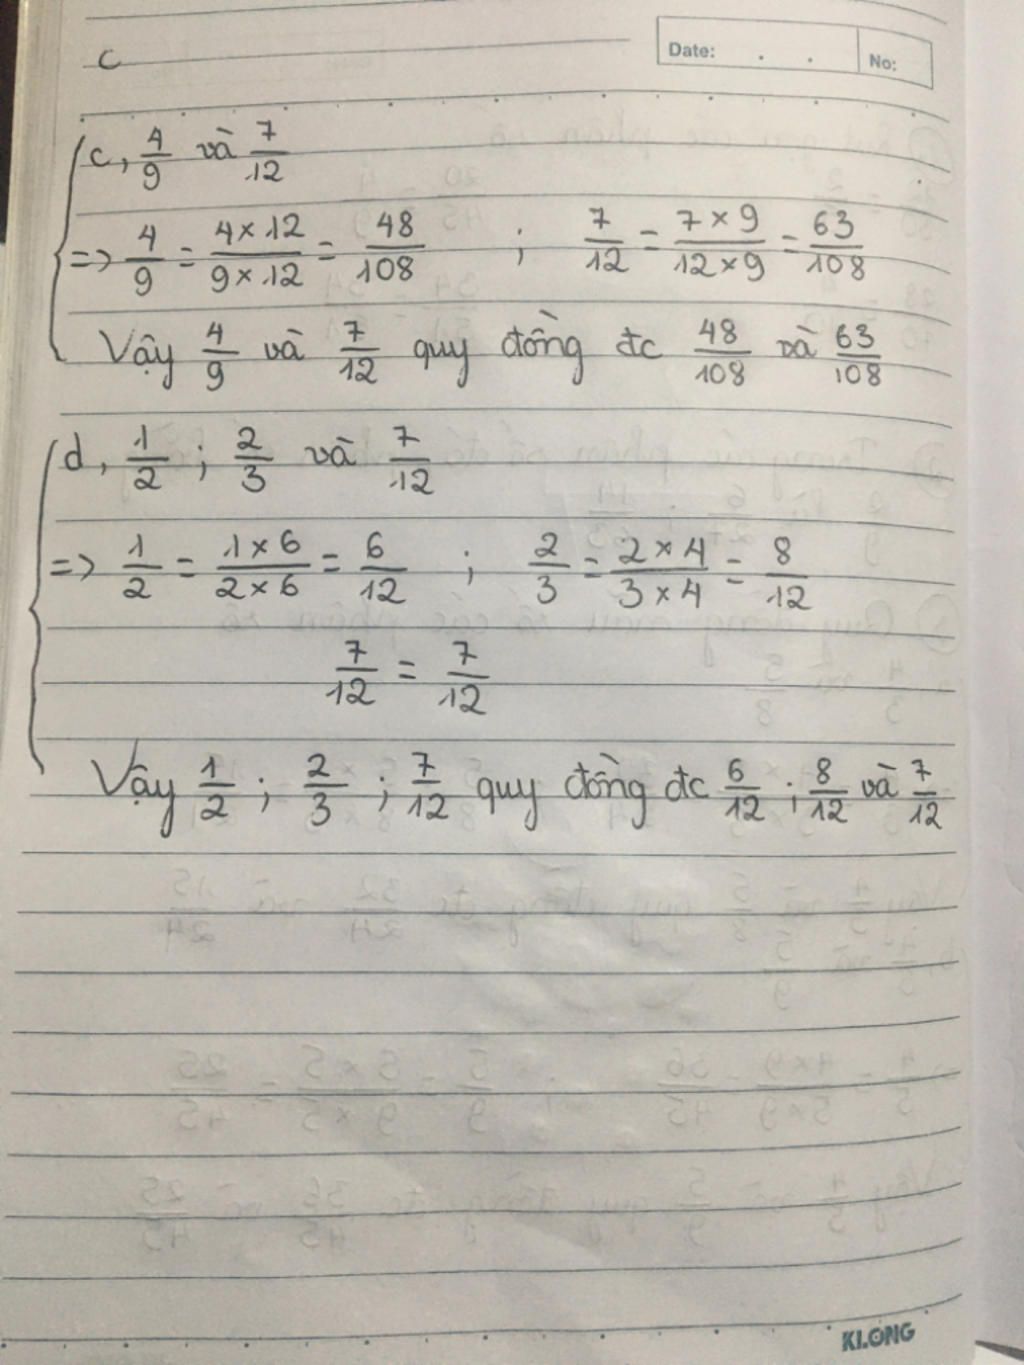 c
Date: . . No:
c, 4/9 và 7/12
=> 4/9 = 4 x 12/9 x 12 = 48/108 ; 7/12 = 7 x 9/12 x 9 = 63/108
Vậy 4/9 và 7/12 quy đồng đc 48/108 và 63/108
d, 1/2 ; 2/3 và 7/12
=> 1/2 = 1 x 6/2 x 6 = 6/12 ; 2/3 = 2 x 4/3 x 4 = 8/12
7/12 = 7/12
Vậy 1/2 ; 2/3 ; 7/12 quy đồng đc 6/12 ; 8/12 và 7/12
KLONG